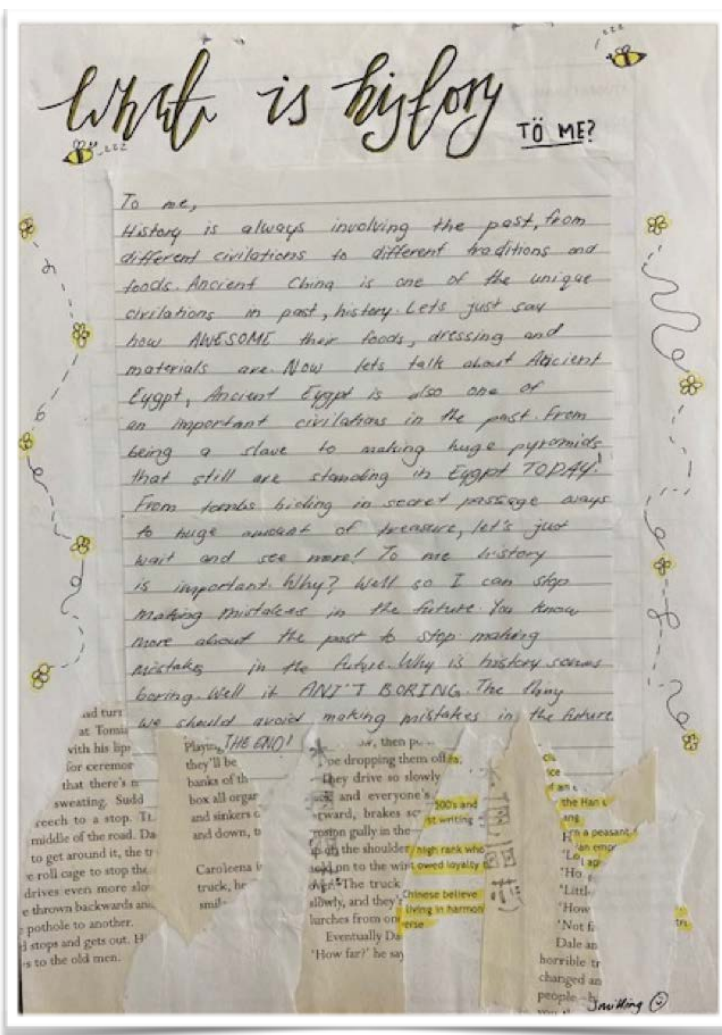 what is history
TO ME?
To me,
History is always involving the past, from
different civilations to different traditions and
foods. Ancient China is one of the unique
civilations in past, history. Lets just say
how AWESOME their foods, dressing and
materials are. Now lets talk about Ancient
Eygpt, Ancient Eygpt is also one of
an important civilations in the past. From
being a slave to making huge pyramids
that still are standing in Eygpt TODAY!
From tombs hiding in secret passage ways
to huge amount of treasure, let's just
wait and see more! To me history
is important. Why? Well so I can stop
making mistakes in the future. You know
more about the past to stop making
mistakes in the future. Why is history
boring. Well it ANI'T BORING. The
we should avoid making mistakes in the future
THE END!
ad turr
at Tomia
with his lips
for ceremor
that there's
sweating. Sudd
reech to a stop.
middle of the road. Da
to get around it, the
roll cage to stop the
drives even more slo
thrown backwards an
pothole to another.
stops and gets out.
s to the old men.
Playin
they'll be
banks of th
box all organ
and sinkers
and down,
Caroleena
truck, he
smil
then
be dropping them off
They drive so slowly
and everyone's
rward, brakes
gully in the
the shoulder
on to the
The truck
slowly, and they
lurches from
Eventually Da
'How far?' he say
500's and
st writing
high rank who
owed loyalty
Chinese believe
living in harmon
erse
the Han
ang
a peasant
an emp
'Lo
'Ho
'Littl
'How
'Not f
Dale an
horrible tr
changed an
people